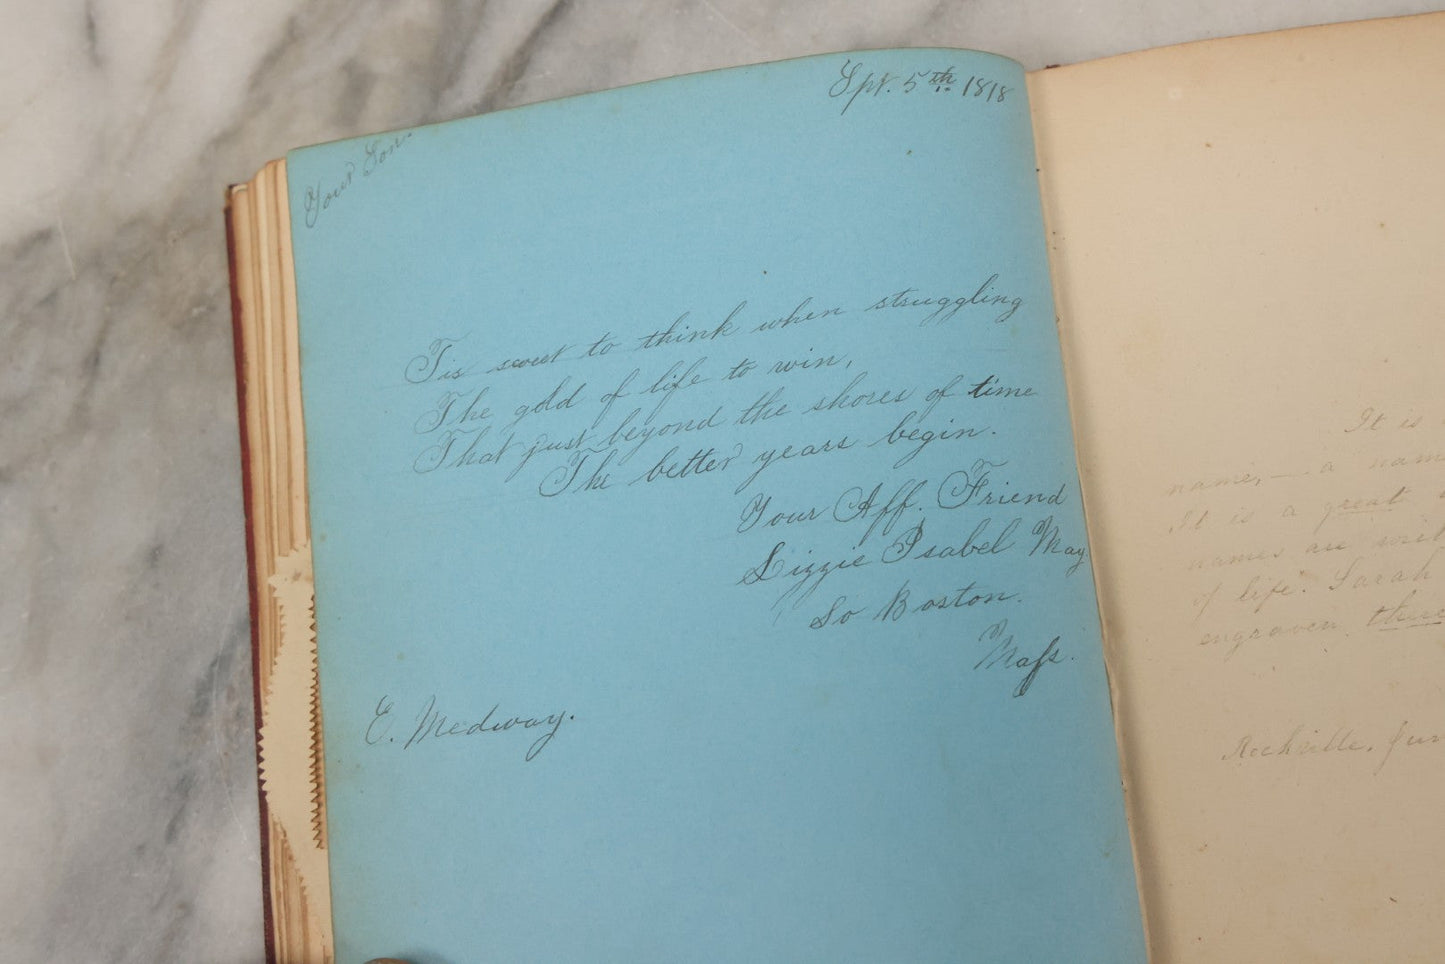 Spt. 5th 1818
Your Son.
Tis sweet to think when struggling
The gold of life to win,
That just beyond the shores of time
The better years begin.
Your Aff. Friend
Lizzie Isabel May
So Boston.
Mass.
E. Medway.
It is
name, — a nam
It is a great
names are writ
of life. Sarah
engraven there
Rockville, Jun